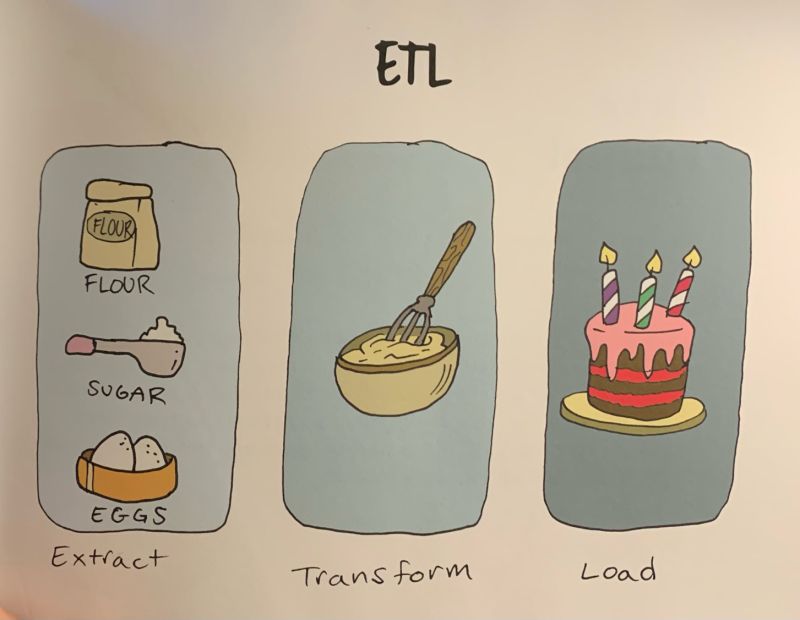 ETL
FLOUR
FLOUR
SUGAR
EGGS
Extract
Transform
Load